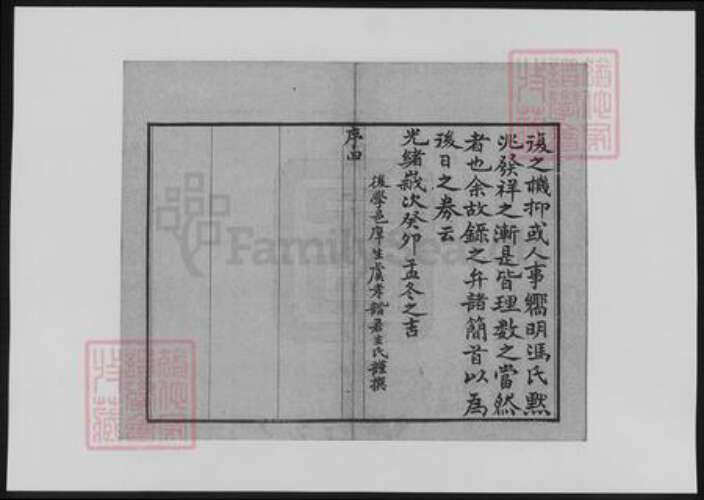 復之機抑或人事矯明馮氏默
兆發祥之漸是皆理數之當然
者也余故錄之弁諸簡首以為
後日之券云
光緒歲次癸卯孟冬之吉
後學邑庠生虞孝錯君生氏謹撰
序四
FamilySearch